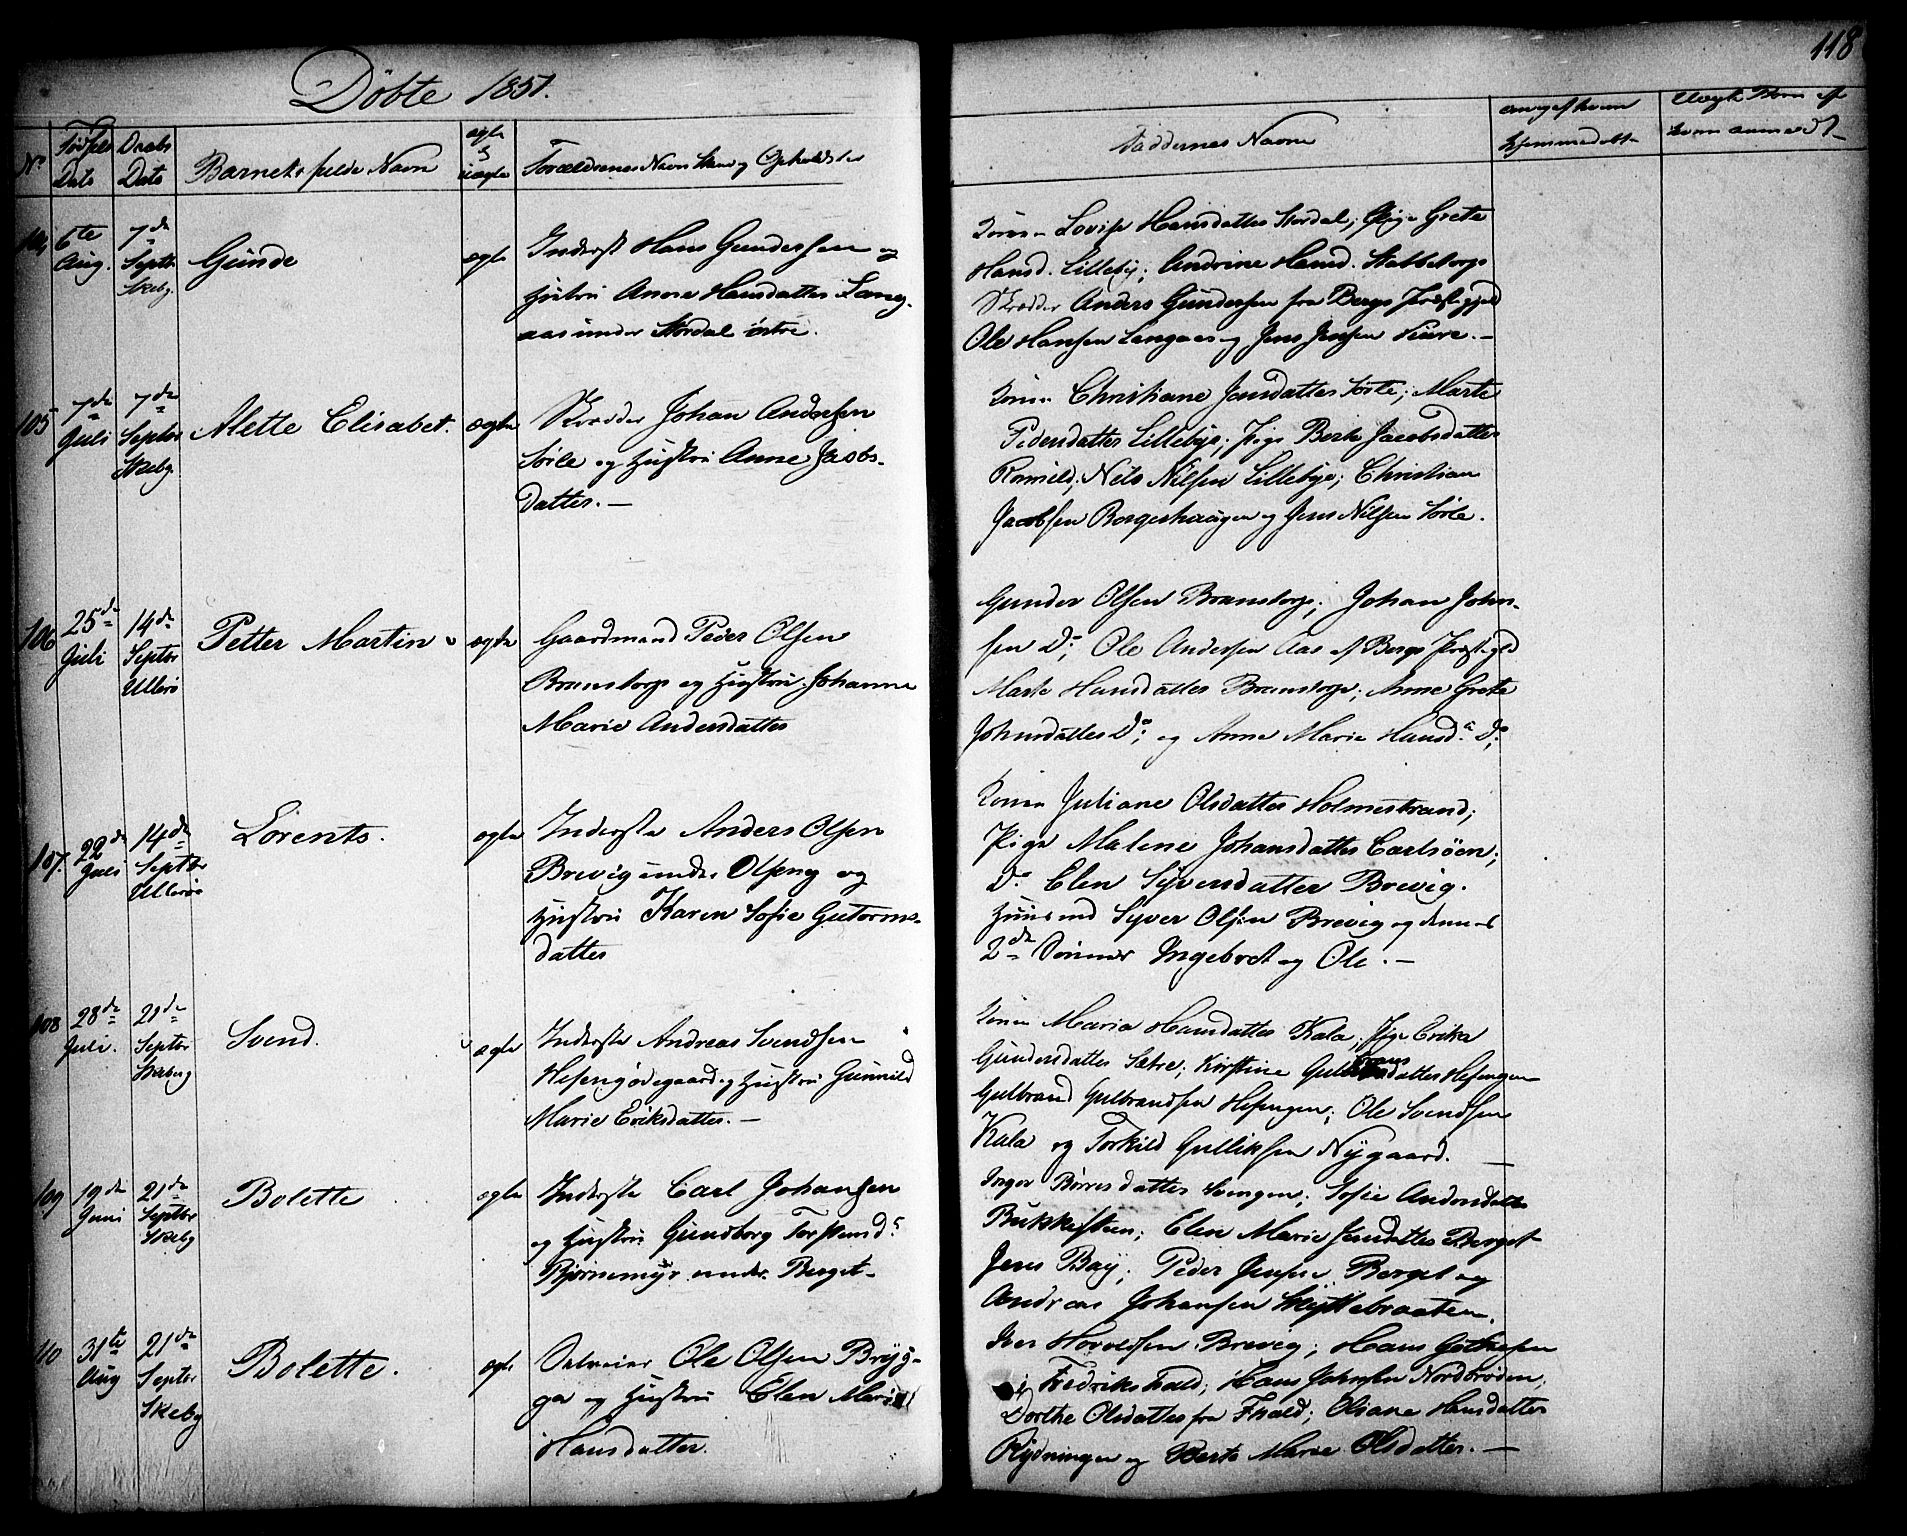 118
Döbte 1851.
No
Fødsels Dato
Daabs Dato
Barnets fulde Navn
ægte
uægte
Forældrenes Navn Stand og Opholdsted
Faddernes Navne
angaf hvem
hjemmedøbt
Uægte Børn af
hvem anmeldt
104
6te Aug.
7de Septbr Skeby.
Gunde
ægte
Inderst Hans Gundersen og
Hustru Anne Hansdatter Lang-
aas under Stordal östre.
Konen Lovise Hansdatter Stordal; Pige Grete
Hansd. Lilleby; Andrine Hansd. Stabbetorp
Skræder Anders Gundersen fra Bergs Præstegjeld
Ole Hansen Langaas og Jens Jensen
105
7de Juli
7de Septbr Skeby.
Alette Elisabet.
ægte
Skræder Johan Andersen
Sörle og Hustru Anne Jacobs-
datter. —
Konen Christiane Jensdatter Sörle; Marte
Pedersdatter Lillebye; Pige Berte Jacobsdatter
Romild; Nils Nilsen Lillebye; Christian
Jacobsen Borgeshaugen og Jens Nilsen Sörle.
106
25de Juli
14de Septbr Ullerö
Petter Martin
ægte
Gaardmand Peder Olsen
Brunstorp og Hustru Johanne
Marie Andersdatter
Gunder Olsen Brunstorp; Johan John-
sen Do; Ole Andersen Aas af Bergs Præstegjeld
Marte Hansdatter Brunstorp; Anne Grete
Johnsdatter Do; og Anne Marie Hansd. Do;
107.
22de Juli
14de Septbr Ullerö
Lorents.
ægte
Inderste Anders Olsen
Brevig under Olseng og
Hustru Karen Sofie Gutorms-
datter
Konen Juliane Olsdatter Holmestrand;
Pige Malene Johansdatter Carlsöen;
Do Elen Syversdatter Brevig.
Huusmd Syver Olsen Brevig og dennes
2de Sönner Ingebret og Ole. —
108
28de Juli.
21de Septbr Skeby
Svend.
ægte
Inderste Andreas Svendsen
Hesengödegaard og Hustru Gunnild
Marie Eriksdatter. —
Konen Maria Hansdatter Kala; Pige Erika
Gundersdatter Sætre; Kirstine Gulbransdatter Hesengen
Gulbrand Gulbrandsen Hesengen; Ole Svendsen
Kala og Torkild Gulliksen Nygaard. —
109
19de Juni
21de Septbr Skeby
Bolette
ægte
Inderste Carl Johansen
og Hustru Gundborg Torstensd.
Bjørnemyr under Berget
Inger Börresdatter; Sofie Andersdatter
Bukkesteen; Elen Marie Jensdatter Berget
Jens Bay; Peder Jensen Berget og
Andreas Johansen Skyttebraaten.
110
31te Aug
21de Septbr Skeby
Bolette.
ægte
Selveier Ole Olsen Bryg-
ge og Hustru Elen Marie
Hansdatter.
Iver Havoldsen Brevig; Hans
i Fredrikshald; Hans Johnsen Nordbröden;
Dorthe Olsdatter fra Fhald; Oliane Hansdatter
Rydningen og Berte Marie Olsdatter. —